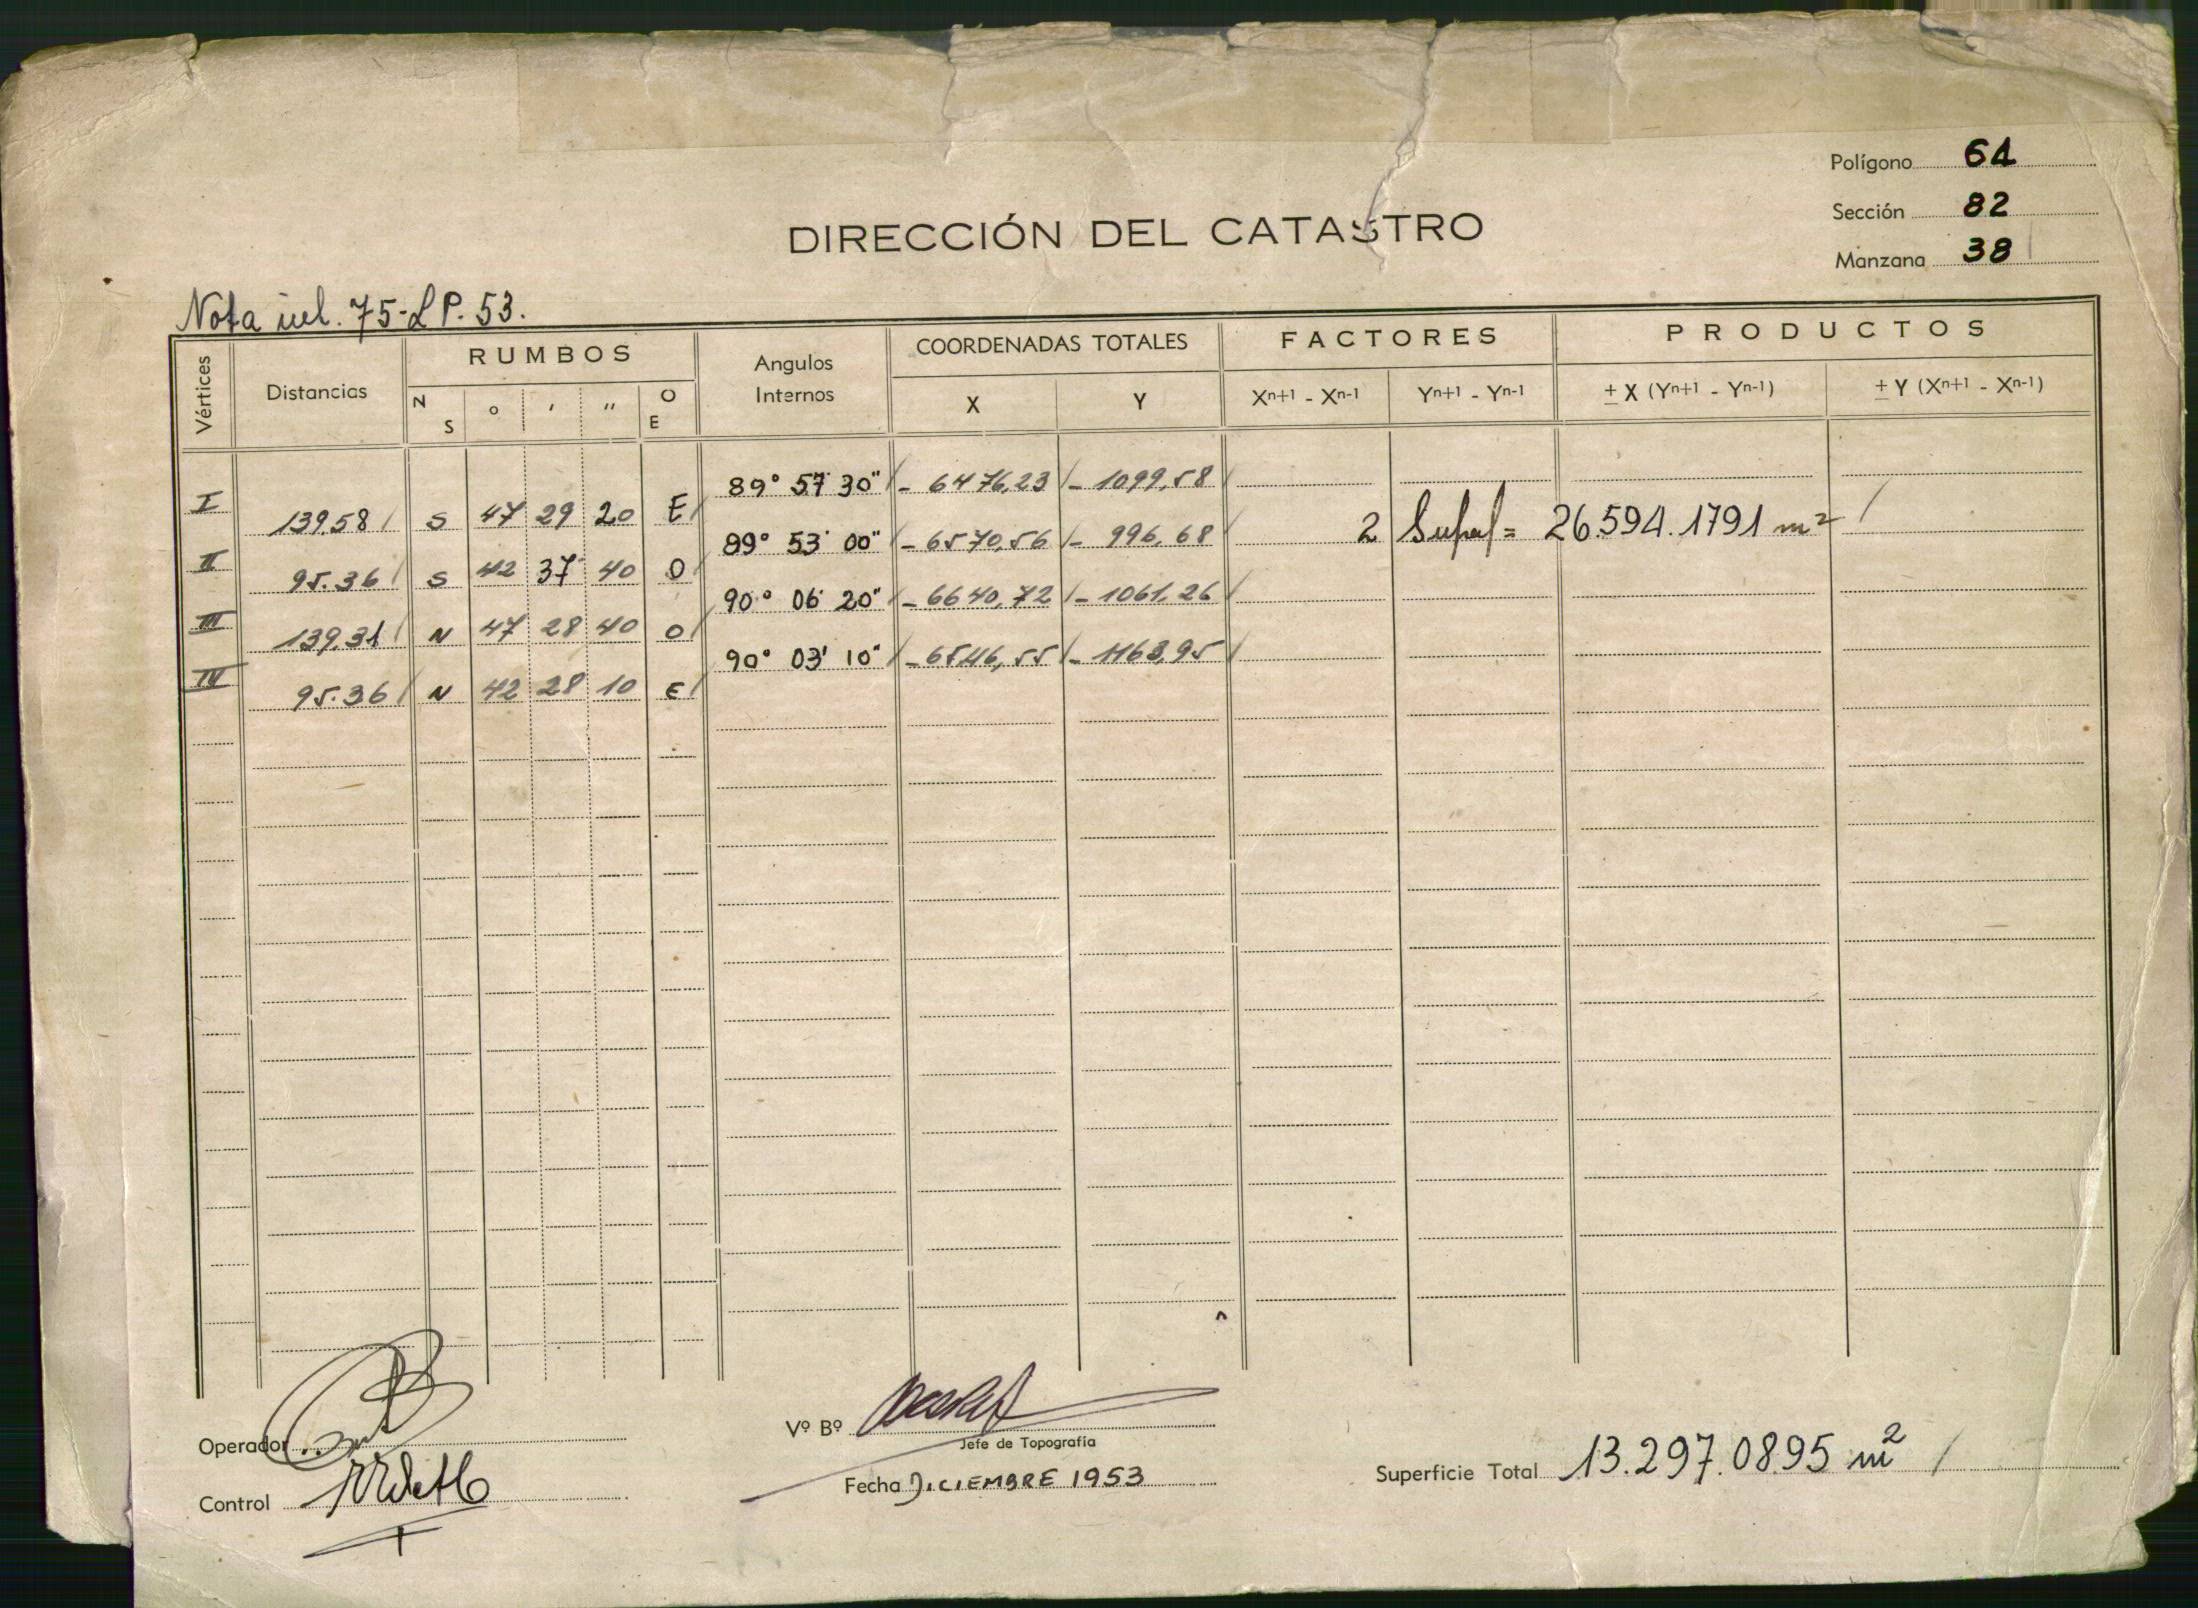 Polígono 64
Sección 82
Manzana 38
DIRECCIÓN DEL CATASTRO
Nota 75-LP.53.
Vértices Distancias RUMBOS Angulos Internos COORDENADAS TOTALES FACTORES PRODUCTOS
N S ° ' " O E X Y Xn+1 - Xn-1 Yn+1 - Yn-1 ± X (Yn+1 - Yn-1) ± Y (Xn+1 - Xn-1)
89° 57' 30" - 6476,23 - 1099,58
I 139.58 S 47 29 20 E
89° 53' 00" - 6570,56 - 996,68 2 Superf = 26.594.1791 m²
II 95.36 S 42 37 40 O
90° 06' 20" - 6640,72 - 1061,26
III 139.31 N 47 28 40 O
90° 03' 10" - 6546,55 - 1163,95
IV 95.36 N 42 28 10 E
Operador
Vº Bº
Jefe de Topografía
Control
Fecha DICIEMBRE 1953
Superficie Total 13.297.0895 m²